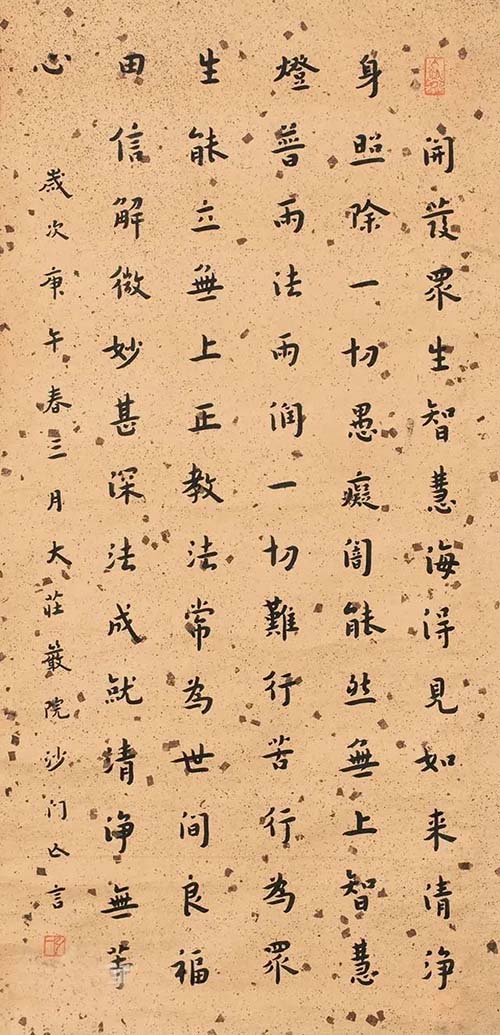 開發眾生智慧海得見如来清淨
身照除一切愚癡闇能然無上智慧
燈普雨法雨潤一切難行苦行為眾
生能立無上正教法常為世間良福
田信解微妙甚深法成就清淨無等
心
歲次庚午春三月大莊嚴院沙门亡言